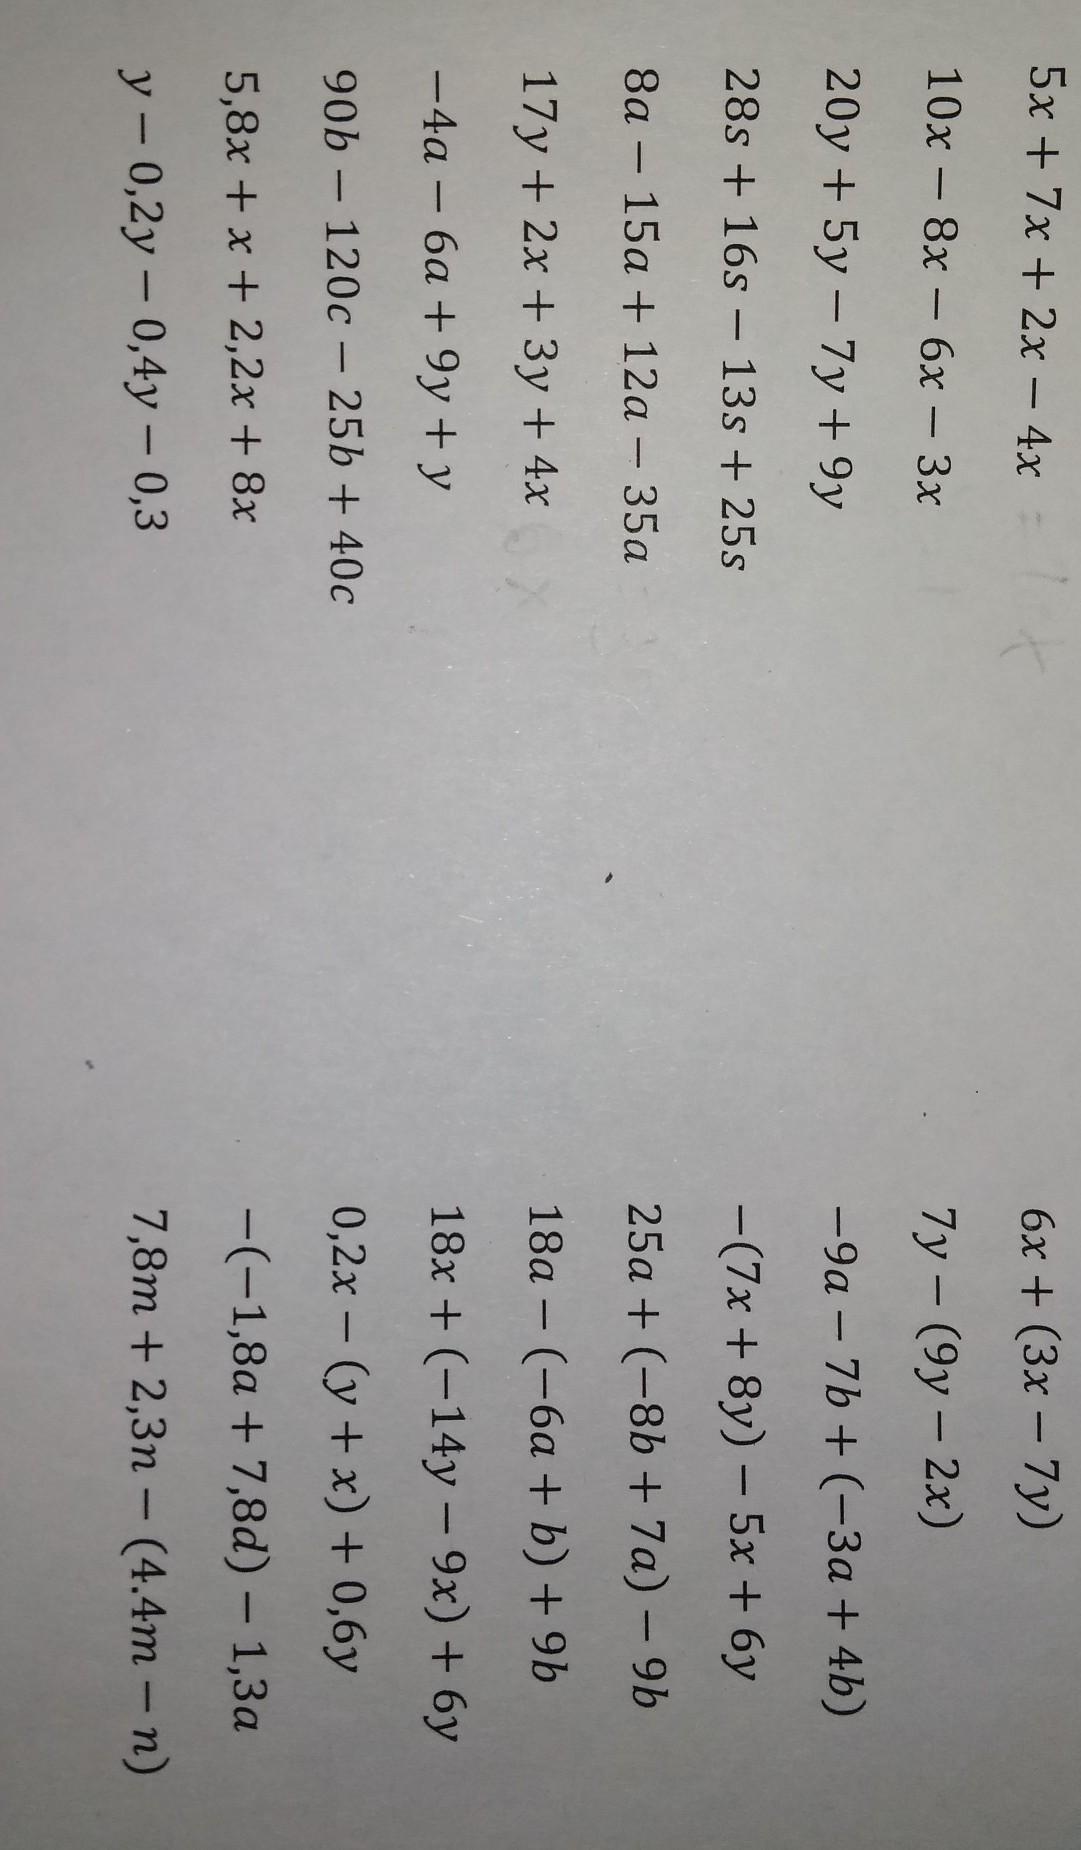 5x + 7x + 2x − 4x
10x − 8x − 6x − 3x
20y + 5y − 7y + 9y
28s + 16s − 13s + 25s
8a − 15a + 12a − 35a
17y + 2x + 3y + 4x
−4a − 6a + 9y + y
90b − 120c − 25b + 40c
5,8x + x + 2,2x + 8x
y − 0,2y − 0,4y − 0,3
6x + (3x − 7y)
7y − (9y − 2x)
−9a − 7b + (−3a + 4b)
−(7x + 8y) − 5x + 6y
25a + (−8b + 7a) − 9b
18a − (−6a + b) + 9b
18x + (−14y − 9x) + 6y
0,2x − (y + x) + 0,6y
−(−1,8a + 7,8d) − 1,3a
7,8m + 2,3n − (4.4m − n)